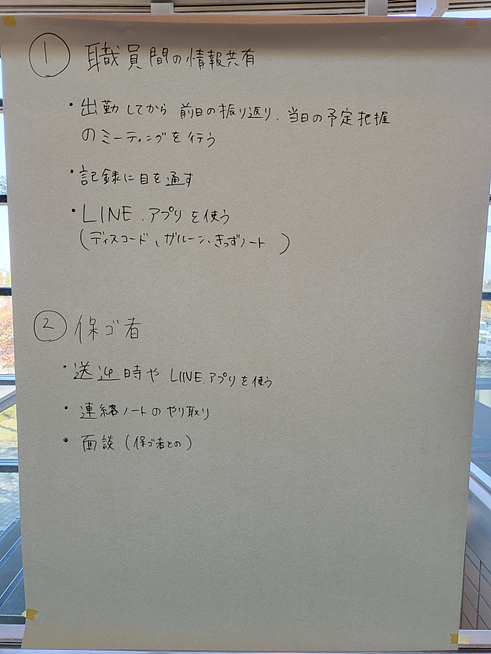 ① 職員間の情報共有
・出勤してから 前日の振り返り、当日の予定把握
のミーティングを行う
・記録に目を通す
・LINE、アプリを使う
(ディスコード、ガルーン、きっずノート )
② 保ゴ者
・送迎時や LINE、アプリを使う
・連絡ノートのやり取り
・面談(保ゴ者との)